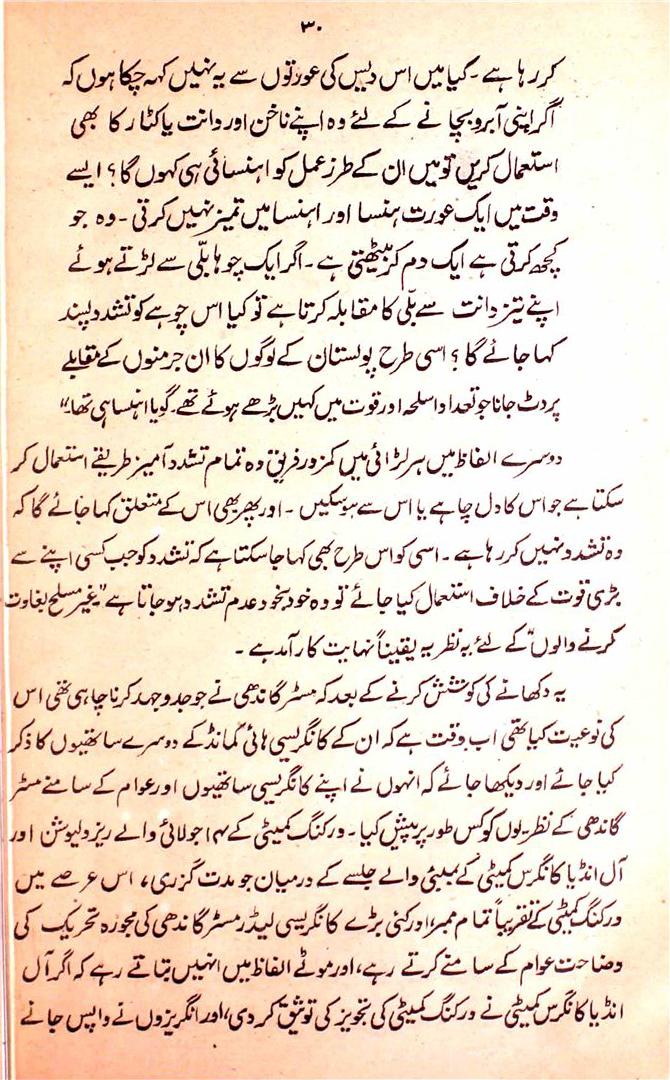 ۳۰
کر رہا ہے ۔ کیا میں اس دیس کی عورتوں سے یہ نہیں کہہ چکا ہوں کہ
اگر اپنی آبرو بچا نے کے لئے وہ اپنے ناخن اور دانت یا کٹار کا بھی
استعمال کریں تو میں ان کے طرز عمل کو اہنسائی ہی کہوں گا؟ ایسے
وقت میں ایک عورت ہنسا اور اہنسا میں تمیز نہیں کرتی ۔ وہ جو
کچھ کرتی ہے ایک دم کر بیٹھتی ہے ۔ اگر ایک چوہا بلّی سے لڑتے ہوئے
اپنے تیز دانت سے بلّی کا مقابلہ کرتا ہے تو کیا اس چوہے کو تشدد پسند
کہا جائے گا؟ اسی طرح پولستان کے لوگوں کا ان جرمنوں کے مقابلے
پر ڈٹ جانا جو تعداد اسلحہ اور قوت میں کہیں بڑھے ہوئے تھے۔ گویا اہنسا ہی تھا۔“
دوسرے الفاظ میں ہر لڑائی میں کمزور فریق وہ تمام تشدد آمیز طریقے استعمال کر
سکتا ہے جو اس کا دل چاہے یا اس سے ہو سکیں ۔ اور پھر بھی اس کے متعلق کہا جائے گا کہ
وہ تشدد نہیں کر رہا ہے ۔ اسی کو اس طرح بھی کہا جا سکتا ہے کہ تشدد کو جب کسی اپنے سے
بڑی قوت کے خلاف استعمال کیا جائے تو وہ خود بخود عدم تشدد ہو جاتا ہے ”غیر مسلح بغاوت
کرنے والوں“ کے لئے یہ نظریہ یقیناً نہایت کار آمد ہے ۔
یہ دکھانے کی کوشش کرنے کے بعد کہ مسٹر گاندھی نے جو جدوجہد کرنا چاہی تھی اس
کی نوعیت کیا تھی اب وقت ہے کہ ان کے کانگریسی ہائی کمانڈ کے دوسرے ساتھیوں کا ذکر
کیا جائے اور دیکھا جائے کہ انہوں نے اپنے کانگریسی ساتھیوں اور عوام کے سامنے مسٹر
گاندھی کے نظریوں کو کس طور پر پیش کیا ۔ ورکنگ کمیٹی کے ۱۴ جولائی والے ریزولیوشن اور
آل انڈیا کانگرس کمیٹی کے بمبئی والے جلسے کے درمیان جو مدت گزری، اس عرصے میں
ورکنگ کمیٹی کے تقریباً تمام ممبر، اور کئی بڑے کانگریسی لیڈر مسٹر گاندھی کی مجوزہ تحریک کی
وضاحت عوام کے سامنے کرتے رہے، اور موٹے الفاظ میں انہیں بتاتے رہے کہ اگر آل
انڈیا کانگرس کمیٹی نے ورکنگ کمیٹی کی تجویز کی توثیق کر دی، اور انگریزوں نے واپس جانے